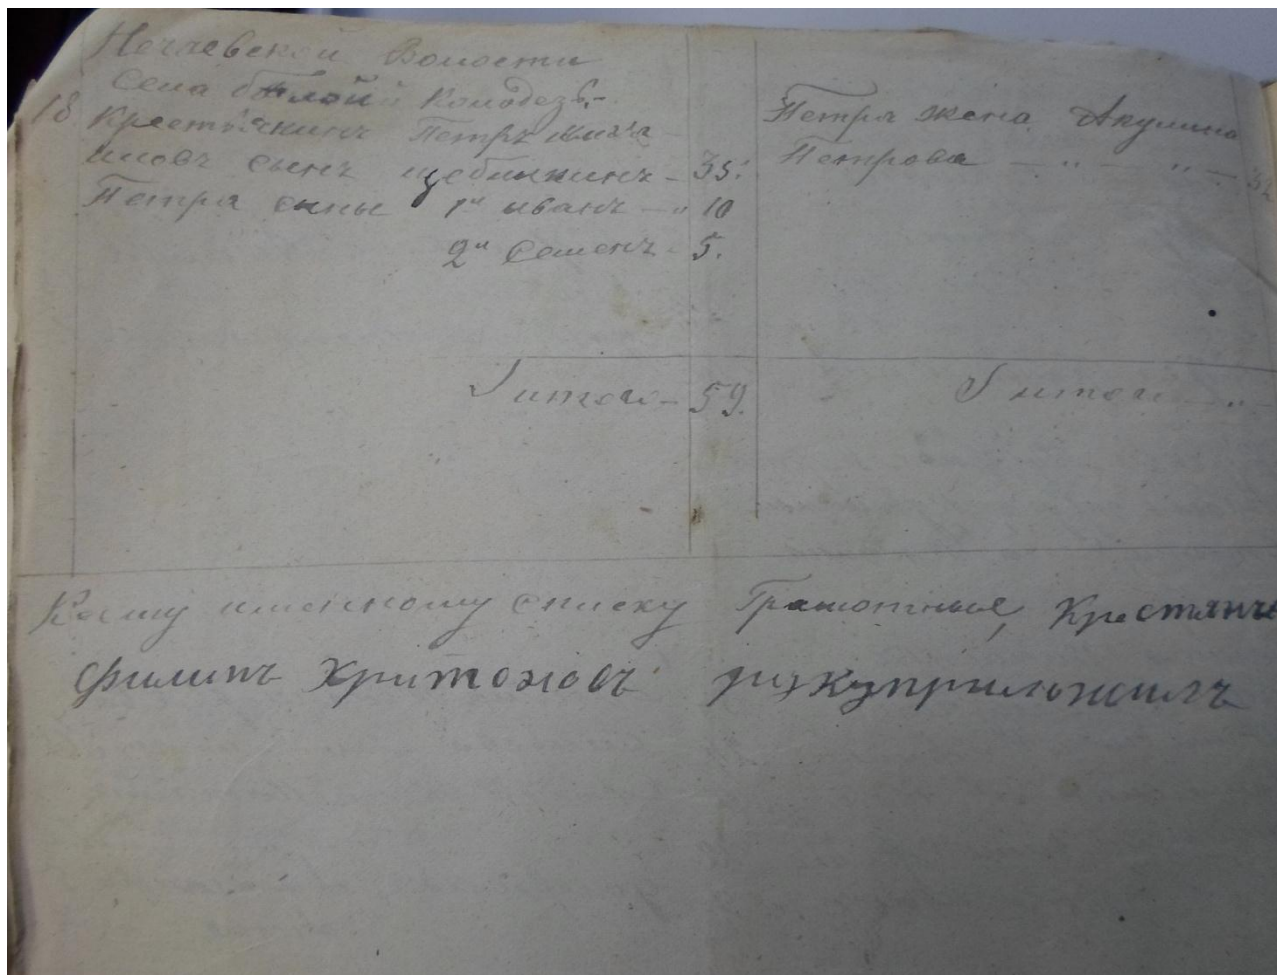 Нечаевской Волости
18 Села бѣлой Колодезь.-
Крестьянинъ Петръ Миха
иловъ сынъ щебѣкинъ - 35.
Петра сыны 1й иванъ - „ 10
2й Семенъ - 5.
Петра жена Акулина
Петрова - „ - „ -
итого - 59.
итого - „ -
Ксему именному списку Грамотные, Крестянъ
Филипъ Хритоновъ рукуприложилъ